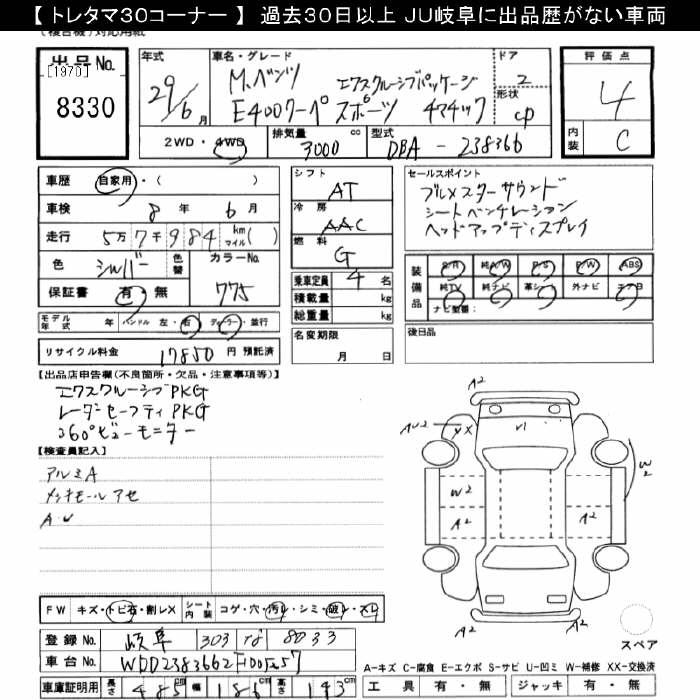 【 トレタマ30コーナー 】 過去30日以上 JU岐阜に出品歴がない車両
出品No.
[1970]
8330
年式
29/6月
車名・グレード
M.ベンツ エクスクルーシブパッケージ
E400クーペ スポーツ 4マチック
ドア
2
形状
cp
2WD・4WD
排気量
3000 cc
型式
DBA - 238366
評価点
4
内装
C
車歴 自家用・( )
車検 8年 6月
走行 5万7千984 km マイル( )
色 シルバー 色替 カラーNo.
保証書 有・無 775
モデル年式 年 ハンドル 左・右 ディーラー・並行
リサイクル料金 17850 円 預託済
シフト
AT
冷房
AAC
燃料
G
乗車定員 4 名
積載量 kg
総重量 kg
名変期限
月 日
セールスポイント
ブルメスターサウンド
シートベンチレーション
ヘッドアップディスプレイ
装備品
S/R 純A/W P/S P/W ABS
純TV 純ナビ 革シート 外ナビ エアB
ナビ型番:
後日品
【出品店申告欄(不良箇所・欠品・注意事項等)】
エクスクルーシブPKG
レーダーセーフティPKG
360°ビューモニター
【検査員記入】
アルミA
メッキモール アセ
A.U
FW キズ・トビ石・割レX シート内装 コゲ・穴・汚レ・シミ・破レ・スレ
登録No. 岐阜 303 な 8033
車台No.
車庫証明用 長さ 485 cm 幅 186 cm 高さ 143 cm
A2
AU2
XX
W2
W2
A2
A2
A2
A2
スペア
A-キズ C-腐食 E-エクボ S-サビ U-凹ミ W-補修 XX-交換済
工具 有・無 ジャッキ 有・無